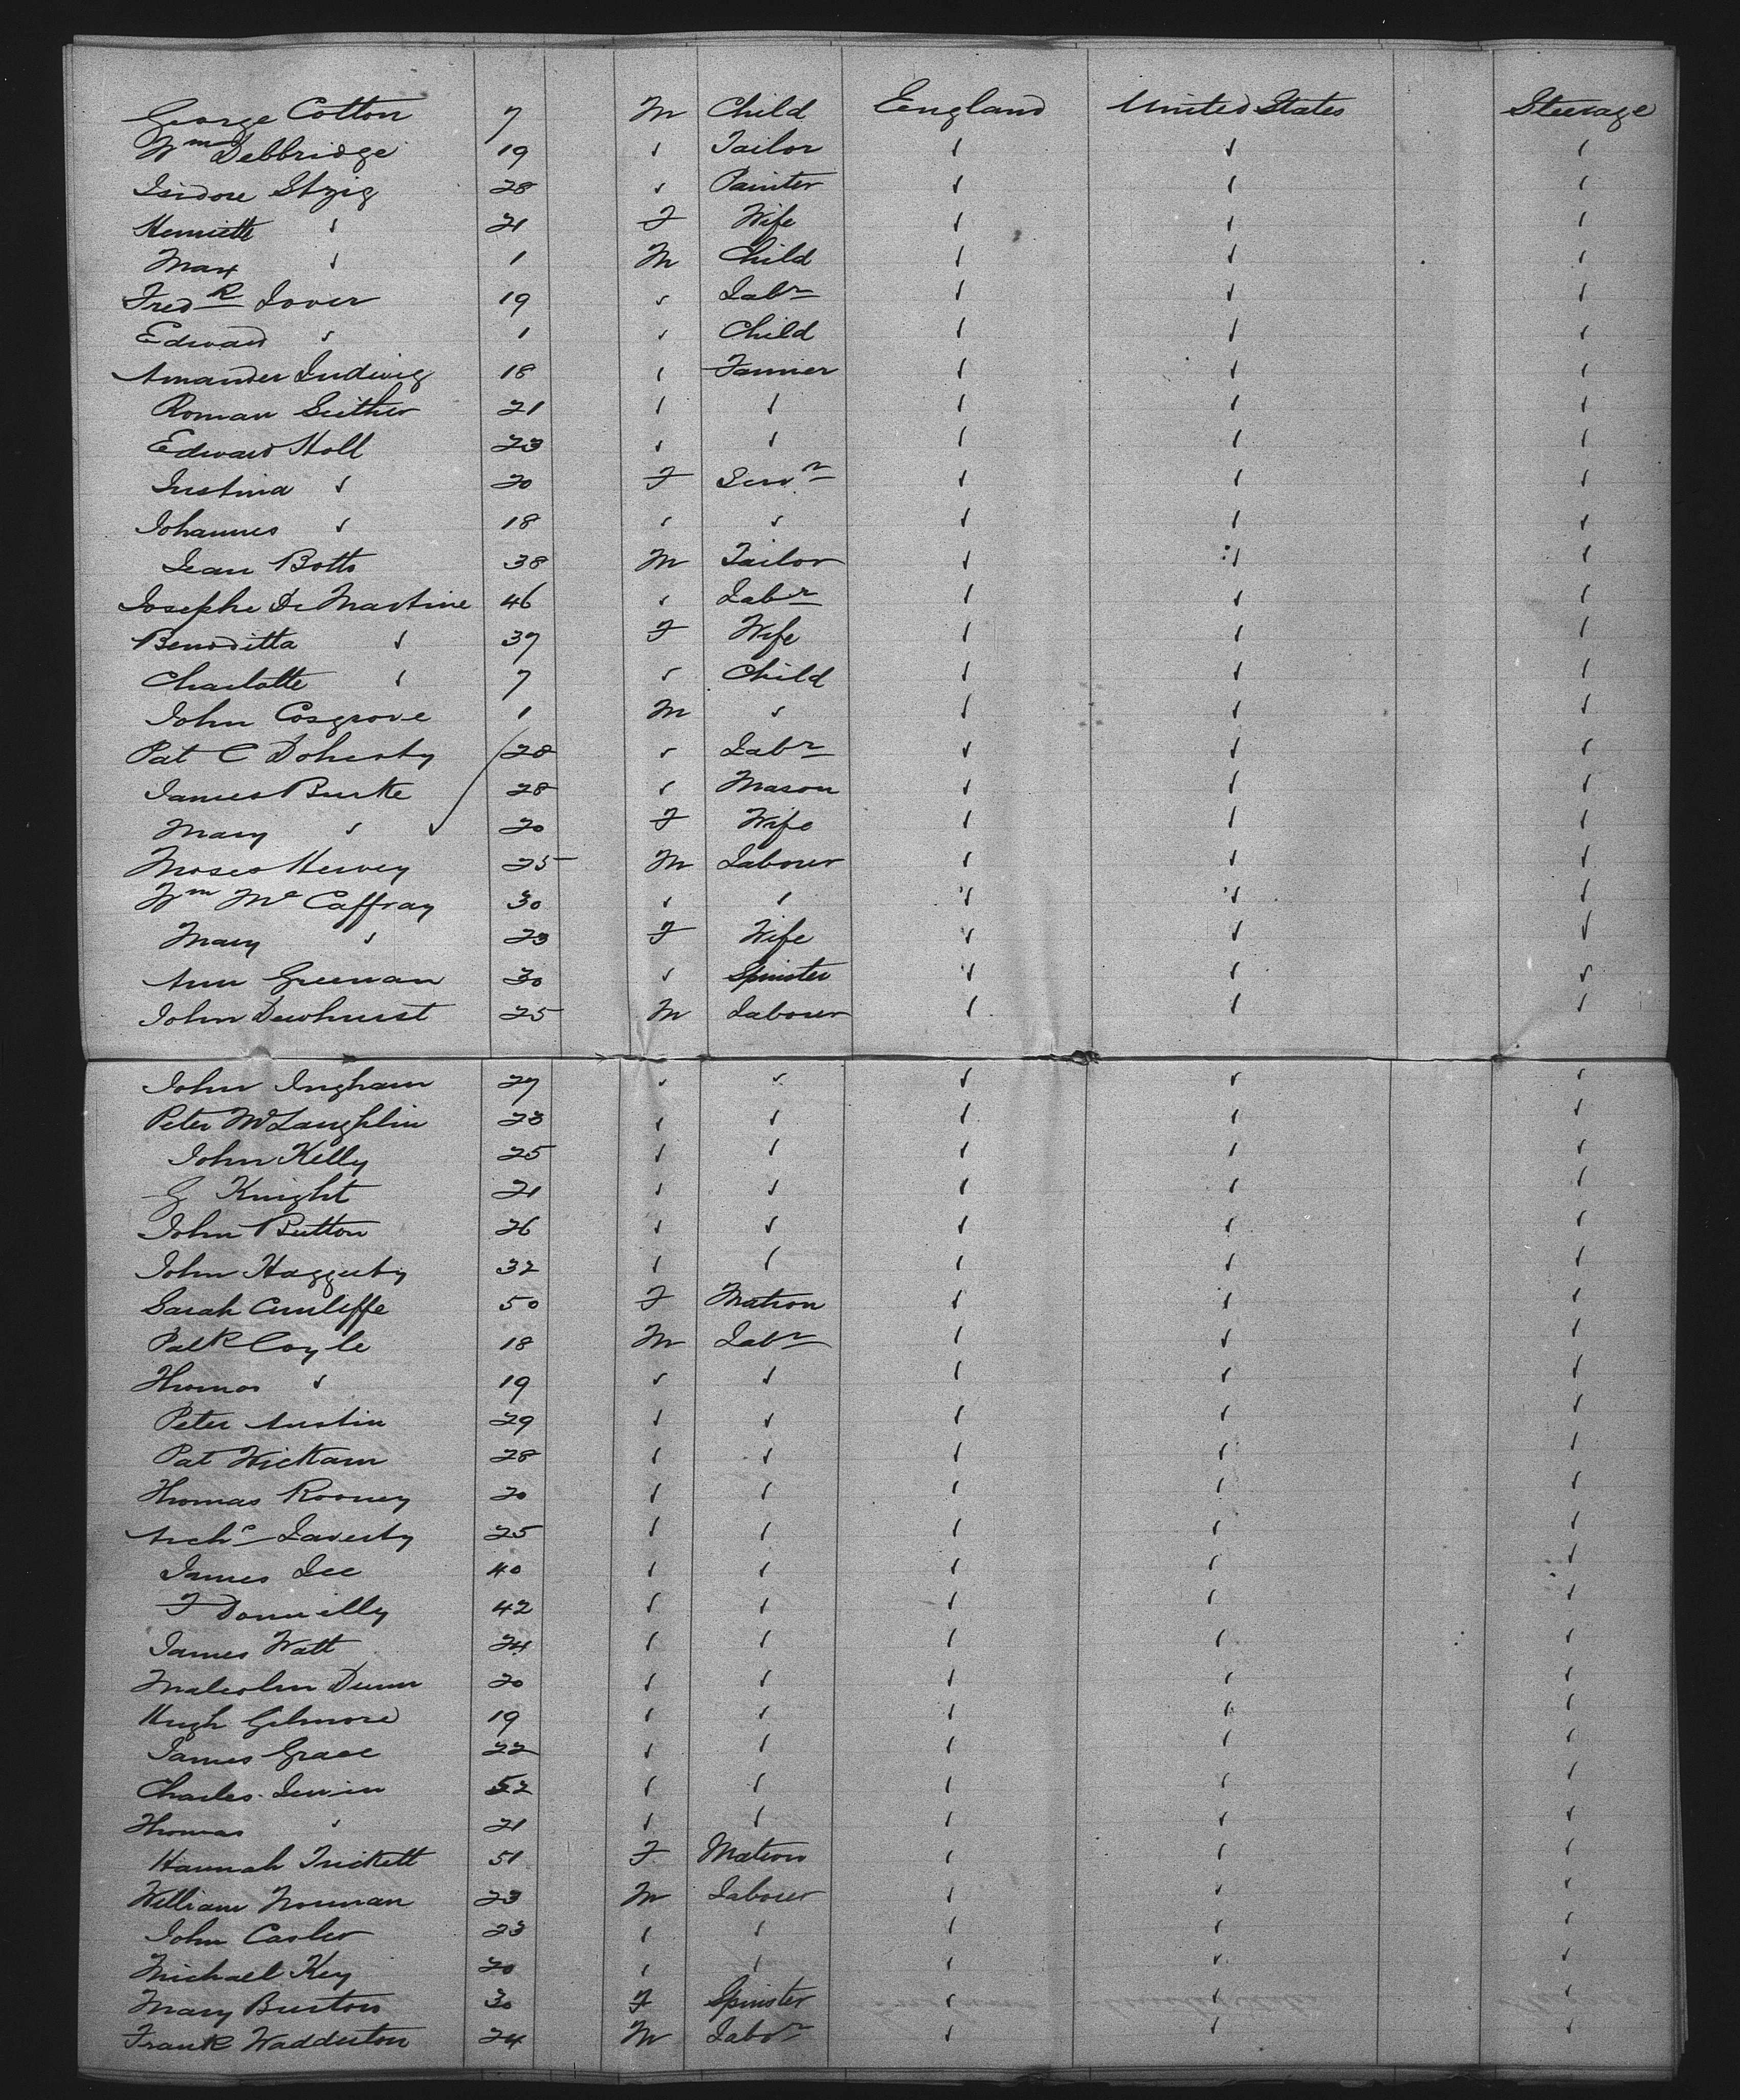 George Cotton 7 M Child England United States Steerage
Wm Debbridge 19 ✓ Tailor ✓ ✓ ✓
Isidore 28 ✓ Painter ✓ ✓ ✓
Henriette ✓ 21 F Wife ✓ ✓ ✓
Max ✓ 1 M Child ✓ ✓ ✓
FredR 19 ✓ Labr ✓ ✓ ✓
Edward ✓ 1 ✓ Child ✓ ✓ ✓
Amander Ludwig 18 ✓ ✓ ✓ ✓
Roman 21 ✓ ✓ ✓ ✓ ✓
Edward Holl 23 ✓ ✓ ✓ ✓ ✓
Justina ✓ 20 F ✓ ✓ ✓
Johannes ✓ 18 ✓ ✓ ✓ ✓ ✓
Jean Botto 38 M Tailor ✓ ✓ ✓
Josephe De Martine 46 ✓ Labr ✓ ✓ ✓
Benoditta ✓ 37 F Wife ✓ ✓ ✓
Charlotte ✓ 7 ✓ Child ✓ ✓ ✓
John Cosgrove 1 M ✓ ✓ ✓ ✓
Pat C Doherty 28 ✓ Labr ✓ ✓ ✓
James Burke 28 ✓ Mason ✓ ✓ ✓
Mary ✓ ✓ 20 F Wife ✓ ✓ ✓
Moses Hervey 25 M Labourr ✓ ✓ ✓
Wm Mc Caffray 30 ✓ ✓ ✓ ✓ ✓
Mary ✓ 23 F Wife ✓ ✓ ✓
Ann Greenan 30 ✓ Spinster ✓ ✓ ✓
John Dewhurst 25 M Labourr ✓ ✓ ✓
John Ingham 27 ✓ ✓ ✓ ✓ ✓
Peter McLaughlin 23 ✓ ✓ ✓ ✓ ✓
John Kelly 25 ✓ ✓ ✓ ✓ ✓
G Knight 21 ✓ ✓ ✓ ✓ ✓
John Button 26 ✓ ✓ ✓ ✓ ✓
John Haggerty 32 ✓ ✓ ✓ ✓ ✓
Sarah Cunliffe 50 F Matron ✓ ✓ ✓
PatK Coyle 18 M Labr ✓ ✓ ✓
Thomas ✓ 19 ✓ ✓ ✓ ✓ ✓
Peter Austin 29 ✓ ✓ ✓ ✓ ✓
Pat Wickam 28 ✓ ✓ ✓ ✓ ✓
Thomas Rooney 20 ✓ ✓ ✓ ✓ ✓
Archd Laverty 25 ✓ ✓ ✓ ✓ ✓
James Lee 40 ✓ ✓ ✓ ✓ ✓
F Donnelly 42 ✓ ✓ ✓ ✓ ✓
James Watt 24 ✓ ✓ ✓ ✓ ✓
Malcolm Dunn 20 ✓ ✓ ✓ ✓ ✓
Hugh Gilmore 19 ✓ ✓ ✓ ✓ ✓
James Grace 22 ✓ ✓ ✓ ✓ ✓
Charles Lewin 52 ✓ ✓ ✓ ✓ ✓
Thomas ✓ 21 ✓ ✓ ✓ ✓ ✓
Hannah Trickett 51 F Matron ✓ ✓ ✓
William Norman 23 M Labourr ✓ ✓ ✓
John Casler 23 ✓ ✓ ✓ ✓ ✓
Michael Key 20 ✓ ✓ ✓ ✓ ✓
Mary Burton 30 F Spinster ✓ ✓ ✓
Frank Wadderton 24 M Labor ✓ ✓ ✓